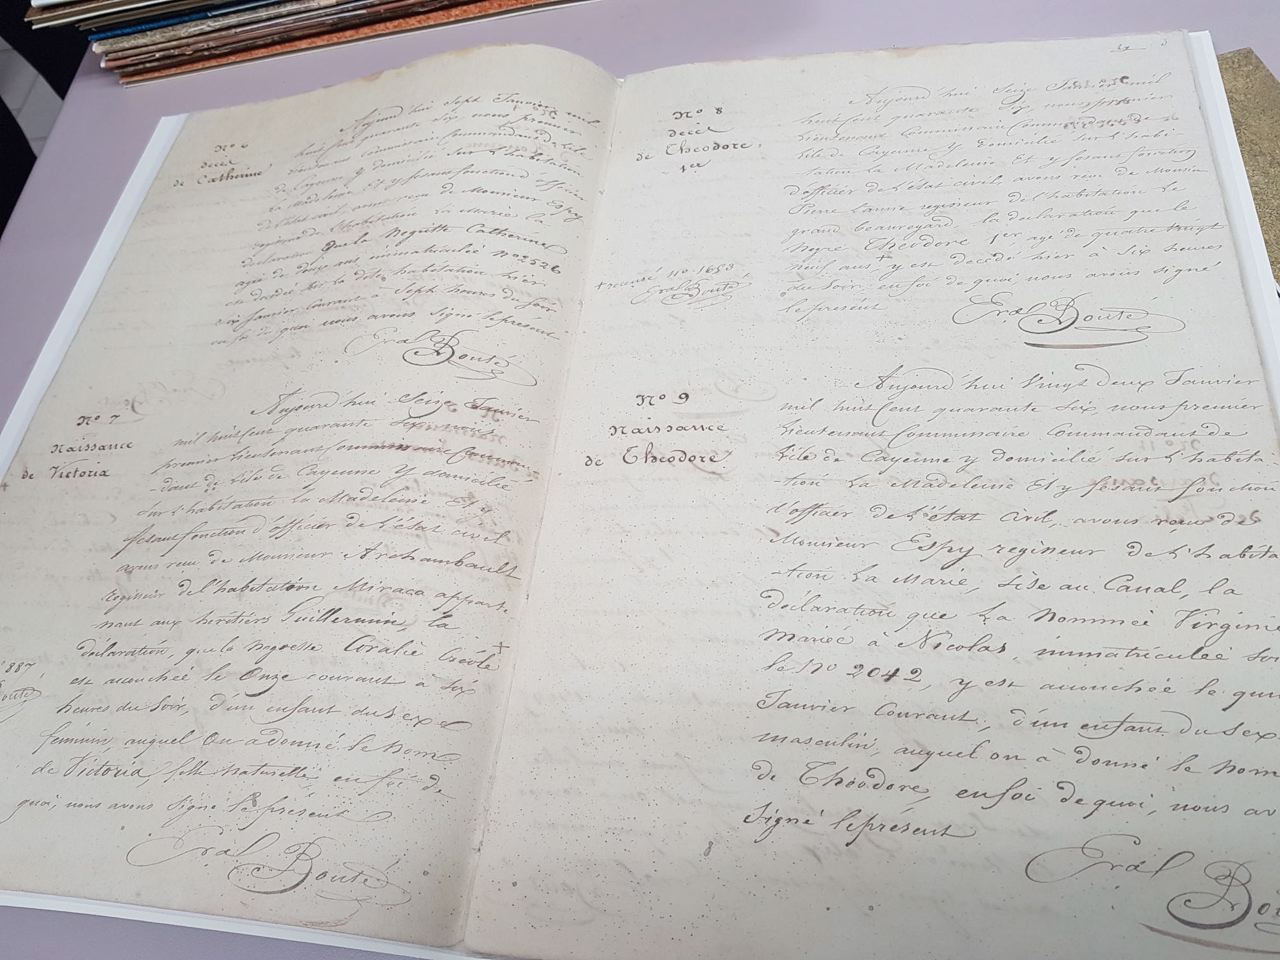 N° 6
decès
de Catherine
Aujourd'hui Sept Janvier mil
huit cent quarante six nous premier
Lieutenant Commissaire Commandant de L'ile
de Cayenne y domicilié sur L'habitation
La Madeleine Et y fesant fonction d'officier
de L'état civil avons reçu de Monsieur Espy
regisseur de L'habitation La Marie La
déclaration que la negritte Catherine
agée de ans, immatriculée N° 2526
est décédée sur la dite habitation hier
six janvier courant à Sept heures du Soir
en foi de quoi nous avons signé le présent
Eral Bouté
N° 7
Naissance
de Victoria
Aujourd'hui Seize Janvier
mil huit Cent quarante Six nous
premier Lieutenant Commissaire Comman-
-dant de L'ile de Cayenne y domicilié
sur L'habitation La Madeleine Et y
fesant fonction d'officier de L'état civil
avons reçu de Monsieur Archambault
regisseur de l'habitation Miraca apparte
nant aux héritiers Guillermin, la
déclaration, que la negresse Coralie Créole +
est accouchée le Onze courant à six
heures du Soir, d'un enfant du sexe
féminin, auquel On a donné le nom
de Victoria, fille naturelle, en foi de
quoi, nous avons signé le présent
Eral Bouté
887
outé
N° 8
decès
de Theodore,
1er
Aujourd'hui Seize Janvier mil
huit Cent quarante Six nous premier
Lieutenant Commissaire Commandant de
L'ile de Cayenne y domicilié sur L'habi-
tation La Madeleine Et y fesant fonction
d'officier de L'état civil, avons reçu de Monsieur
Pierre regisseur de L'habitation Le
grand beauregard la déclaration que le
negre Theodore 1er agé de quatre vingt
neuf ans, + y est décédé hier à Six heures
du Soir, en foi de quoi nous avons signé
le présent
Eral Bouté
+ N° 1653
Eral Bouté
N° 9
Naissance
de Theodore
Aujourd'hui Vingt deux Janvier
mil huit Cent quarante Six nous premier
Lieutenant Commissaire Commandant de
L'ile de Cayenne y domicilié sur L'habita-
-tion La Madeleine Et y fesant fonction
d'officier de L'état Civil, avons reçu de
Monsieur Espy regisseur de L'habita
-tion La Marie, Sise au Canal, la
déclaration que La nommée Virginie
mariée à Nicolas, immatriculée So
le N° 2042, y est accouchée le
Janvier Courant, d'un enfant du Sex
masculin, auquel on à donné le nom
de Théodore, en foi de quoi, nous av
signé le present
Eral Bou